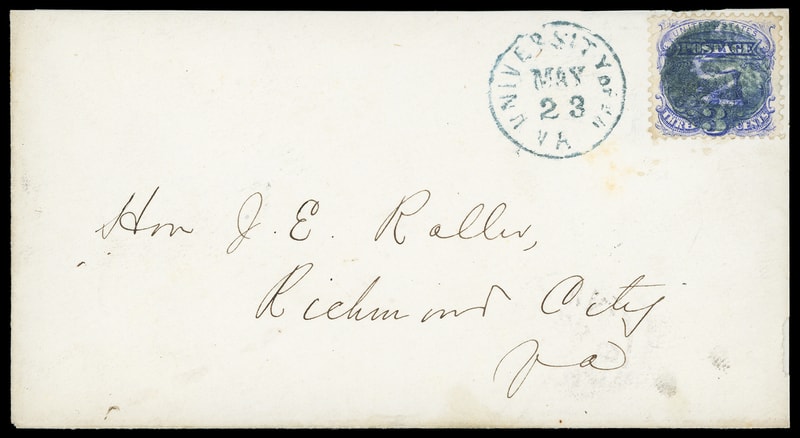 UNIVERSITY OF VA
MAY
23
VA
UNITED STATES
POSTAGE
THREE 3 CENTS
Hon J. E. Roller,
Richmond City
Va